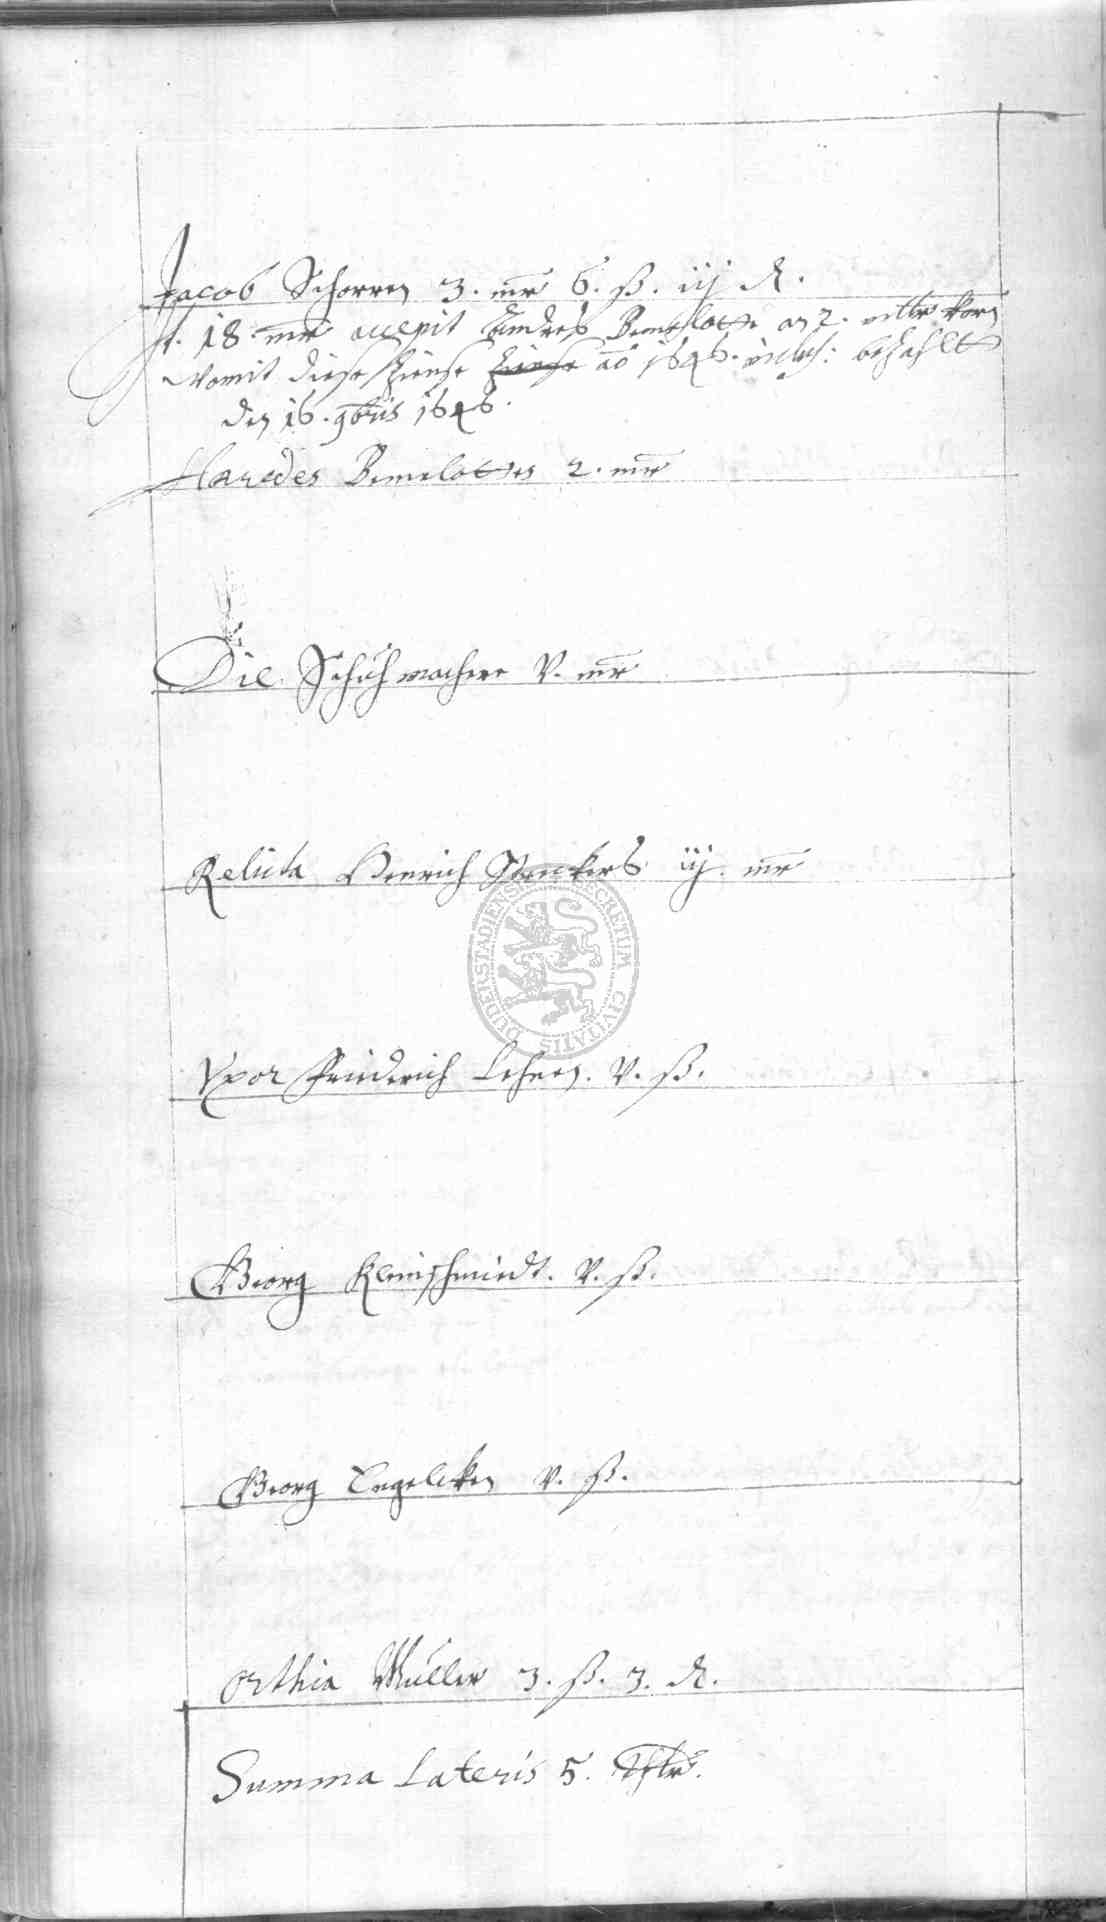 Jacob Schorren 3. mr 6. ß. iij d.
t. 18 mr accepit Andres Bemelotte an 2. mltr korn
Womit diese Zinse Zinse aō 1646. inclus: bezahlt
den 16. 9bris 1646.
Haredes Bemelottes 2. mr
Die Schuhmachere V. mr
Relicta Henrich Strickers iij. mr
Vxor Friederich Lehnen. V. ß.
Georg Kleinschmiedt. V. ß.
Georg Engelcken V. ß.
Orthia Müller 3. ß. 3. d.
Summa Lateris 5. thlr.
DUDERSTADIENSIS SECRETUM CIVITATIS